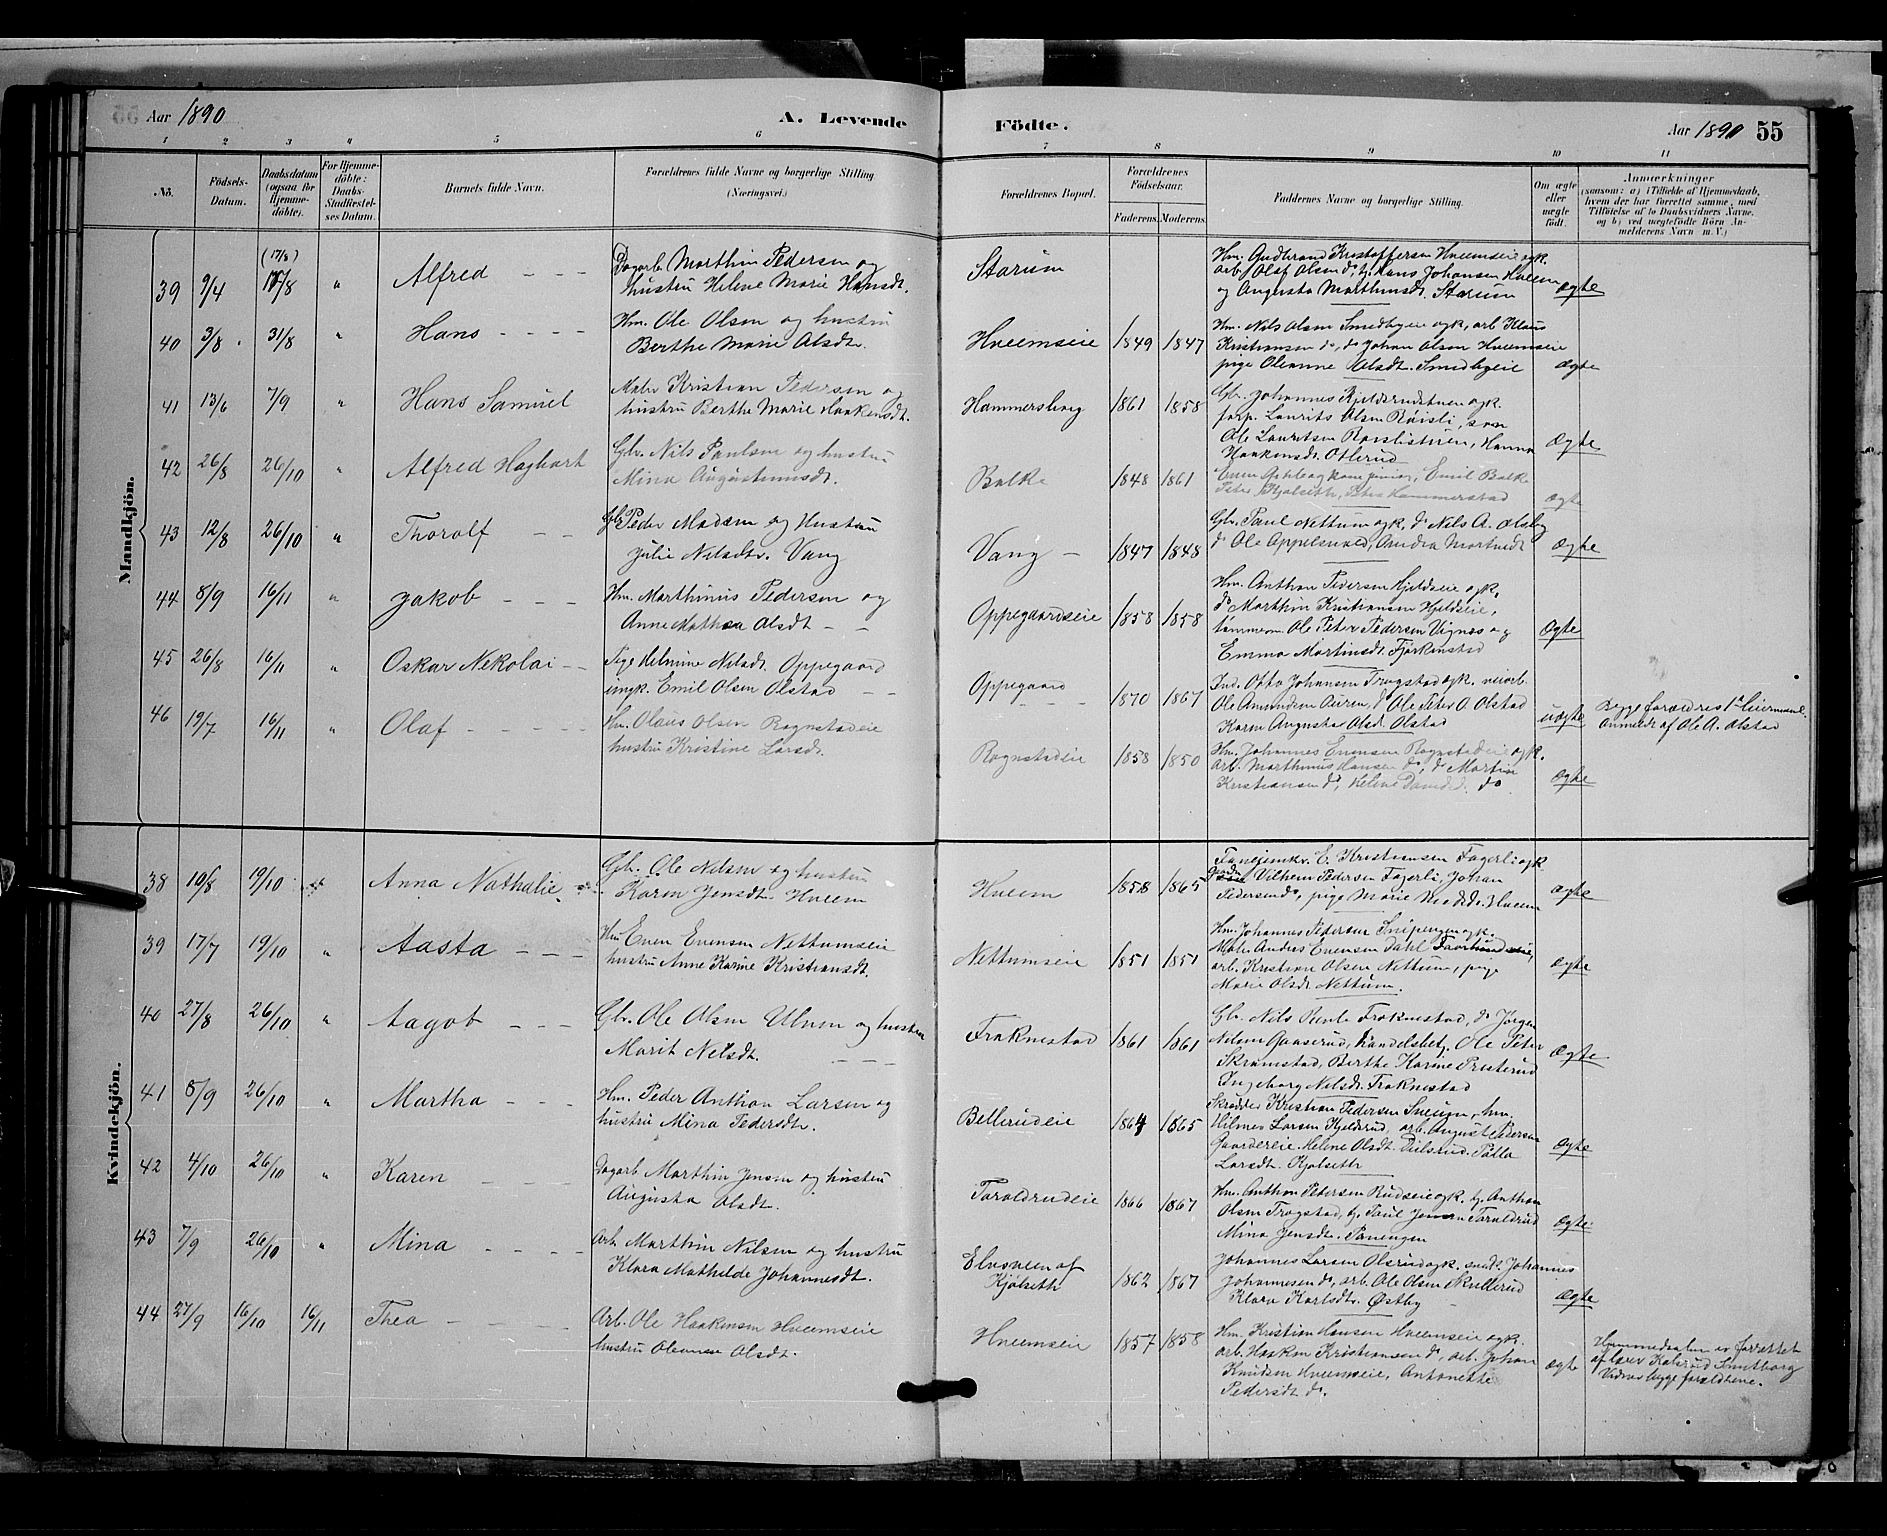 Aar 1890
A. Levende
Födte.
Aar 1890
55
1 2 3 4 5 6 7 8 9 10 11
No.
Födsels-
Datum.
Daabsdatum
(ogsaa for
Hjemme-
döbte).
For Hjemme-
döbte:
Daabs-
Stadfæstel-
ses Datum.
Barnets fulde Navn.
Forældrenes fulde Navne og borgerlige Stilling
(Næringsvei.)
Forældrenes Bopæl.
Forældrenes
Födselsaar.
Faderens. Moderens.
Faddernes Navne og borgerlige Stilling.
Om ægte
eller
uægte
födt.
Anmærkninger
(saasom: a) i Tilfælde af Hjemmedaab,
hvem der har forrettet samme, med
Tilföielse af to Daabsvidners Navne,
og b) ved uægtefödte Börn An-
melderens Navn m. V.)
Mandkjön.
39 9/4 (17/8) 17/8 " Alfred
Dagarb. Marthin Pedersen og
hustru Helene Marie Hansdt.
Starum
Hm. Gudbrand Kristoffersen Hveemseie ogk.
arb. Olof Olsen do, tj. Hans Johansen Hveem
og Augusta Marthinsdt. Starum
ægte
40 3/8 31/8 " Hans
Hm. Ole Olsen og hustru
Berthe Marie Olsdt.
Hveemseie 1849 1847
Hm. Nils Olsen Smedbyeie ogk, arb Klaus
Kristiansen do, do Johan Olsen Hveemseie
pige Oleanne Olsdt. Smedbyeie
ægte
41 13/6 7/9 " Hans Samuel
Maler Kristian Pedersen og
hustru Berthe Marie Haakensdt.
Hammersberg 1861 1858
Gbr. Johannes Kjeldsrudstuen ogk.
forp. Laurits Olsen Röisli,
Ole Lauritsen Röislistuen, Hanna
Haakensdt. Oterud
ægte
42 26/8 26/10 " Alfred Hagbart
Gbr. Nils Paulsen og hustru
Mina Augustinusdt.
Balke 1848 1861
Emil Balke
Peter Kjölseth, Hammerstad
ægte
43 12/8 26/10 " Thorolf
Gbr Peder Madsen og Hustru
Julie Nilsdtr. Vang
Vang 1847 1848
Gbr. Paul Nettum ogk, do Nils A. Olsby
do Ole Appelsvold, Andrea Mortnsdt
ægte
44 8/9 16/11 " Jakob
Hm. Marthinus Pedersen og
Anne Mathea Olsdt
Oppegaardseie 1858 1858
Hm. Anthon Pedersen Hjeldseie ogk,
do Marthin Kristiansen Hjeldseie,
tömmerm. Ole Peter Pedersen Vignes og
Emma Martinsdt. Fjörkenstad
ægte
45 26/8 16/11 " Oskar Nekolai
Pige Helmine Nilsdt. Oppegaard
ungk. Emil Olsen Olstad
Oppegaard 1870 1867
Ind. Otto Johansen Trogstad ogk. veiarb.
Ole Amundsen Auren, do Ole Peter A. Olstad
Karen Augusta Olsd. Olstad
uægte
Begge forældres 1ste leiermaal.
Anmeldt af Ole A. Olstad
46 19/7 16/11 " Olaf
Hm. Olaus Olsen Rognstadeie
hustru Kristine Larsdt.
Rognstadeie 1858 1850
Hm. Johannes Evensen Rognstadeie ogk.
arb. Marthinus Hansen do, do Martin
Kristiansen do, Helene Davidsd. do
ægte
Kvindekjön.
38 10/8 19/10 Anna Nathalie
Gbr. Ole Nilsen og hustru
Karen Jensdt. Hveem
Hveem 1858 1865
E. Kristiansen Fagerli ogk.
Vilhelm Pedersen Fagerli, Johan
Pedersen do, pige Marie Hveem
ægte
39 17/7 19/10 " Aasta
Hm Even Evensen Nettumseie
hustru Anne Karine Kristiansdt.
Nettumseie 1851 1851
Hm. Johannes Pedersen Snipengen ogk.
Maler Andres Evensen Dahl
arb. Kristian Olsen Nettum, pige
Marie Olsdt Nettum.
ægte
40 27/8 26/10 " Aagot
Gbr. Ole Olsen Ulnen og hustru
Marit Nilsdt.
Fraknestad 1861 1861
Gbr. Nils Fraknestad, do Jörgen
Nilsen Gaaserud, handelsbetj. Ole Peter
Skrömstad, Berthe Karine Presterud
Ingeborg Nelsdt. Fraknestad
ægte
41 8/9 26/10 " Martha
Hm. Peder Anthon Larsen og
hustru Mina Pedersdtr.
Bellerudeie 1864 1865
Skrædder Kristian Pedersen hm.
Hilmer Larsen Kjelsrud, arb. August Pedersen
Gaardereie. Helene Olsdt.
Larsdt. Kjölseth
ægte
42 4/10 26/10 " Karen
Dagarb. Marthin Jensen og hustru
Augusta Olsdt.
Taraldrudeie 1866 1867
Hm. Anthon Petersen Rudseie ogk. tj. Anthon
Olsen Trogstad, tj. Paul Jensen Taraldrud
Mina Jensdt. Panengen
ægte
43 7/9 26/10 " Mina
Arb. Marthin Nilsen og hustru
Klara Mathilde Johannesdt.
Elvsveen af
Kjölseth 1862 1867
Johannes Larsen Olsrud ogk. smed Johannes
Johannesen do, arb. Ole Olsen Skullerud
Klara Karlsdt. Östby
ægte
44 27/9 16/10 16/11 Thea
Arb. Ole Haakensen Hveemseie
hustru Oleanne Olsdt.
Hveemseie 1857 1858
Hm. Kristian Hansen Hveemseie ogk.
arb. Haaken Kristiansen do, arb. Johan
Knudsen Hveemseie, Antonette
Pedersdt do.
ægte
Hjemmedaaben er forrettet
af lærer Kalsrud Smedborg
Vidner begge forældrene.